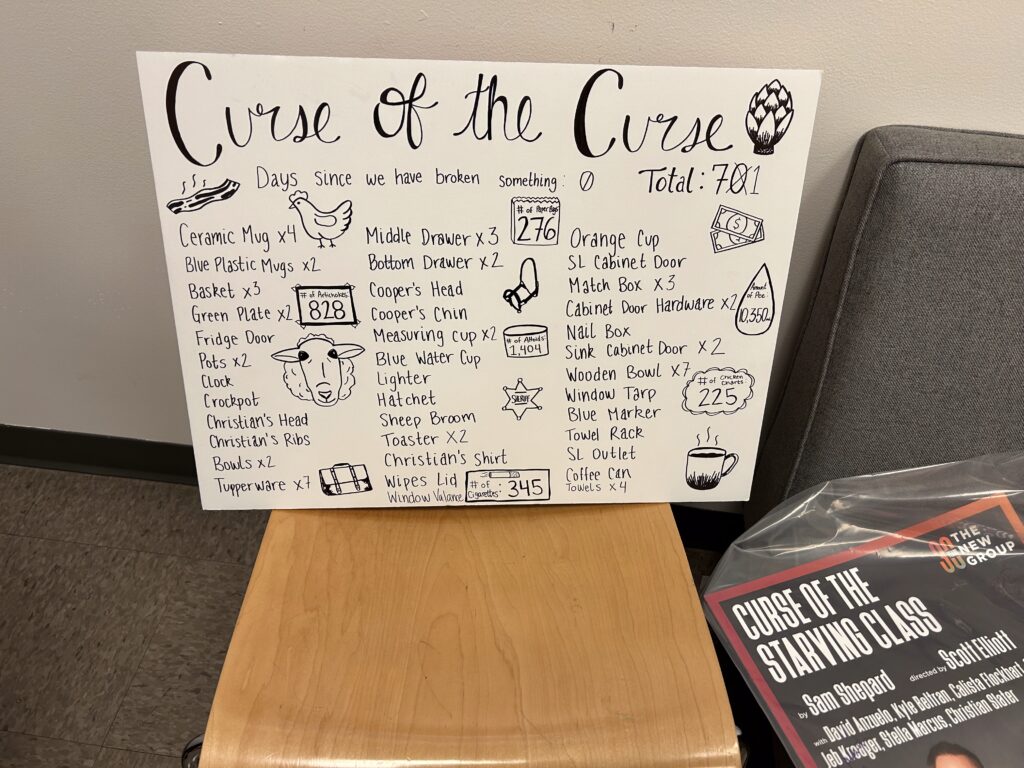 Curse of the Curse
Days since we have broken something: 0
Total: 701
Ceramic Mug x4
Blue Plastic Mugs x2
Basket x3
Green Plate x2
Fridge Door
Pots x2
Clock
Crockpot
Christian's Head
Christian's Ribs
Bowls x2
Tupperware x7
# of Artichokes:
828
Middle Drawer x3
Bottom Drawer x2
Cooper's Head
Cooper's Chin
Measuring Cup x2
Blue Water Cup
Lighter
Hatchet
Sheep Broom
Toaster x2
Christian's Shirt
Wipes Lid
Window Valance
# of Paper Bags
276
# of Altoids:
1,404
SHERIFF
# of Cigarettes:
345
Orange Cup
SL Cabinet Door
Match Box x3
Cabinet Door Hardware x2
Nail Box
Sink Cabinet Door x2
Wooden Bowl x7
Window Tarp
Blue Marker
Towel Rack
SL Outlet
Coffee Can
Towels x4
$
Amount of Pee:
10,350mL
# of Chicken Chants:
225
THE
NEW
GROUP
CURSE OF THE
STARVING CLASS
by Sam Shepard
directed by Scott Elliott
with David Anzuelo, Kyle Beltran, Calista Flockhart
Jeb Kreager, Stella Marcus, Christian Slater